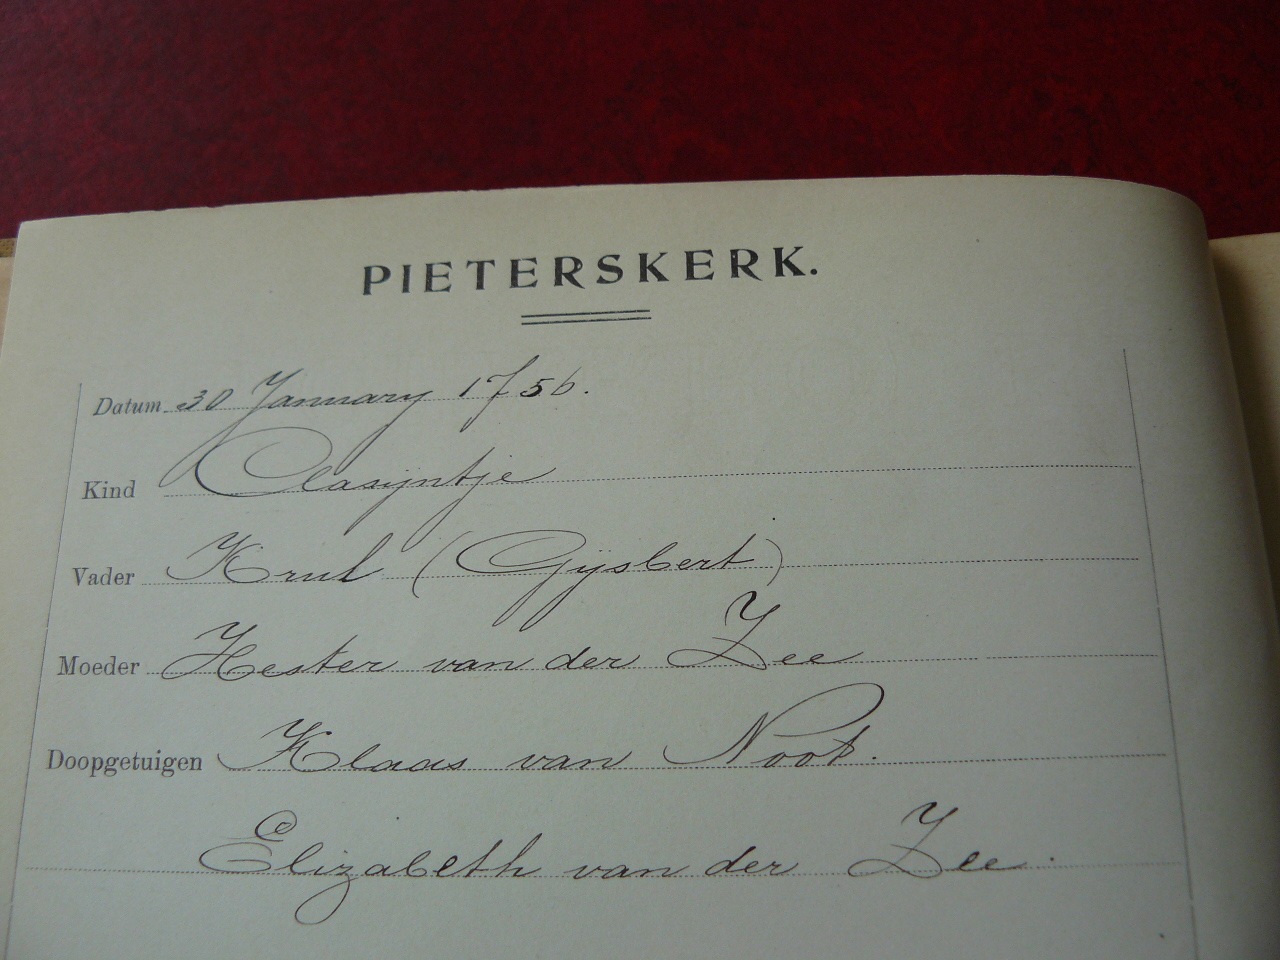 PIETERSKERK.
Datum 30 January 1756.
Kind Clasijntje
Vader Krul (Gijsbert)
Moeder Hester van der Zee
Doopgetuigen Klaas van Noot.
Elizabeth van der Zee.